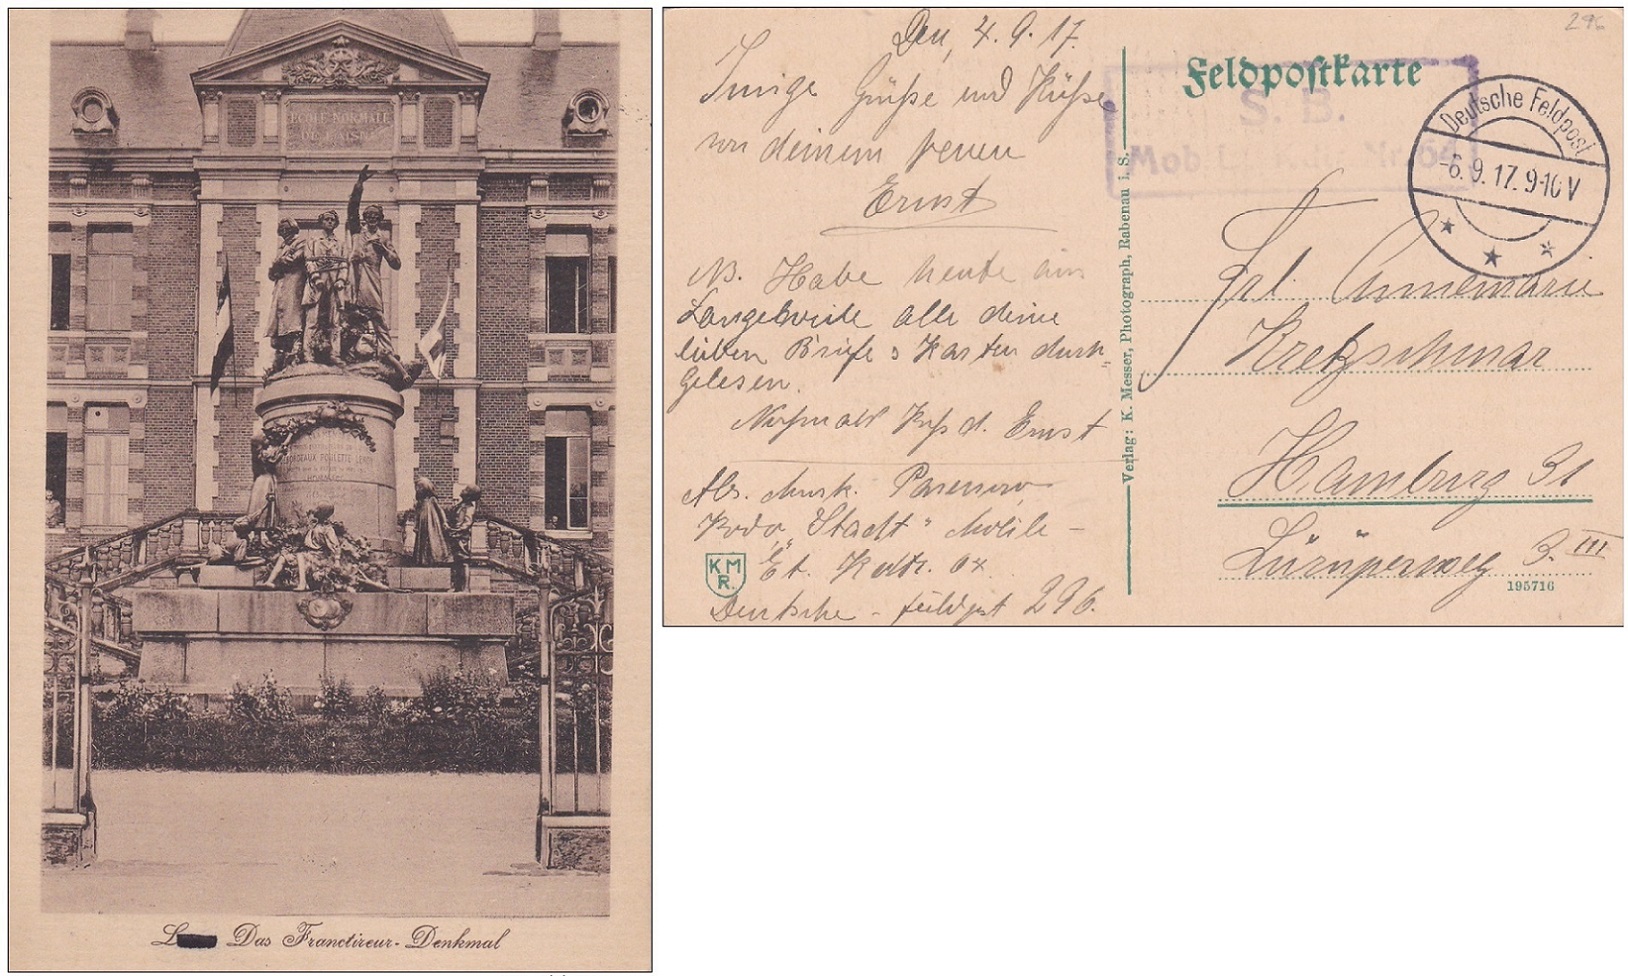 ECOLE NORMALE
DE L'AISNE
L Das Franctireur-Denkmal
Den, 4. 9. 17.
Innige Grüße und Küße
von deinem treuen
Ernst
NB. Habe heute aus
Langeweile alle deine
lieben Briefe u Karten durch
gelesen.
Nochmals Kuß d. Ernst
Abs. Musk.
"Stadt"
Deutsche - Feldpost 296.
KM
R.
Verlag: K. Messer, Photograph, Rabenau i. S.
296
Feldpostkarte
S. B.
Mob. Nr. 64
Deutsche Feldpost
-6. 9. 17. 9-10 V
Frl. Annemarie
Kretzschmar
Hamburg 31
Lürüperweg 3. III
195716